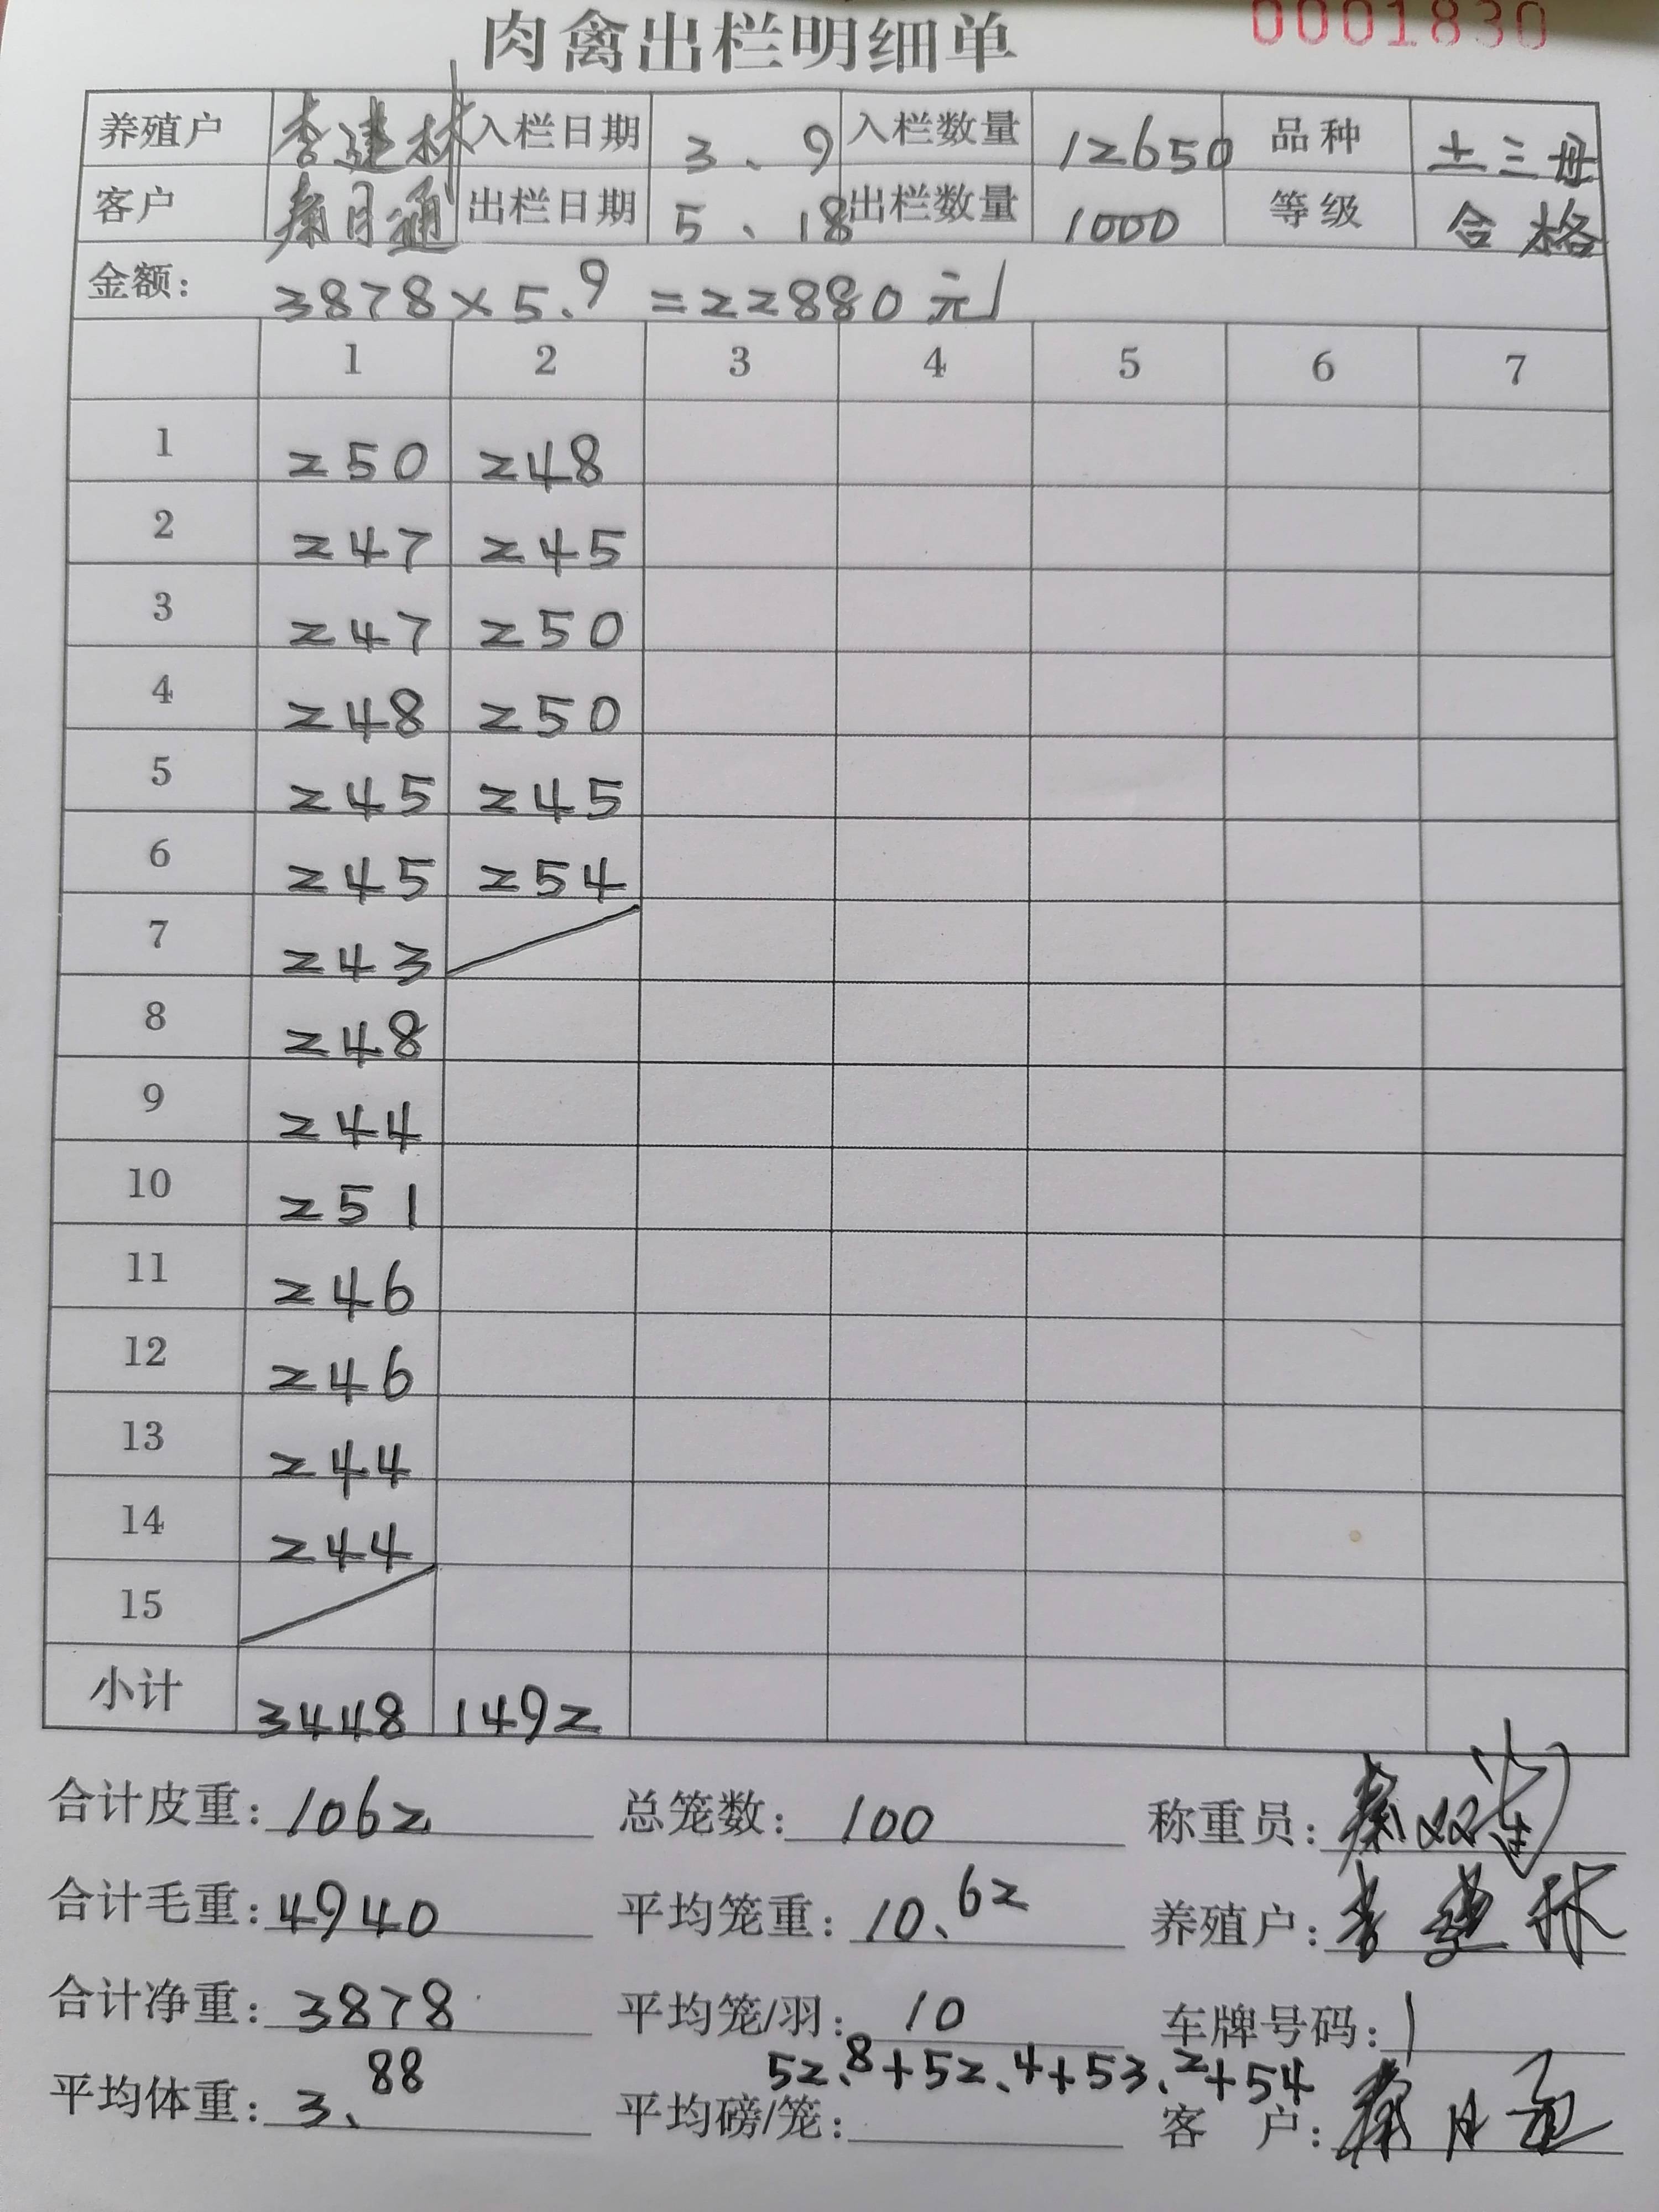 肉禽出栏明细单 0001830
养殖户 李建林 入栏日期 3、9 入栏数量 12650 品种 土三母
客户 秦月通 出栏日期 5、18 出栏数量 1000 等级 合格
金额: 3878×5.9=22880元
1 2 3 4 5 6 7
1 250 248
2 247 245
3 247 250
4 248 250
5 245 245
6 245 254
7 243
8 248
9 244
10 251
11 246
12 246
13 244
14 244
15
小计 3448 1492
合计皮重: 1062 总笼数: 100 称重员: 秦双
合计毛重: 4940 平均笼重: 10.62 养殖户: 李建林
合计净重: 3878 平均笼/羽: 10 车牌号码: 1
52.8+52.4+53.2+54
平均体重: 3.88 平均磅/笼: 客户: 秦月通